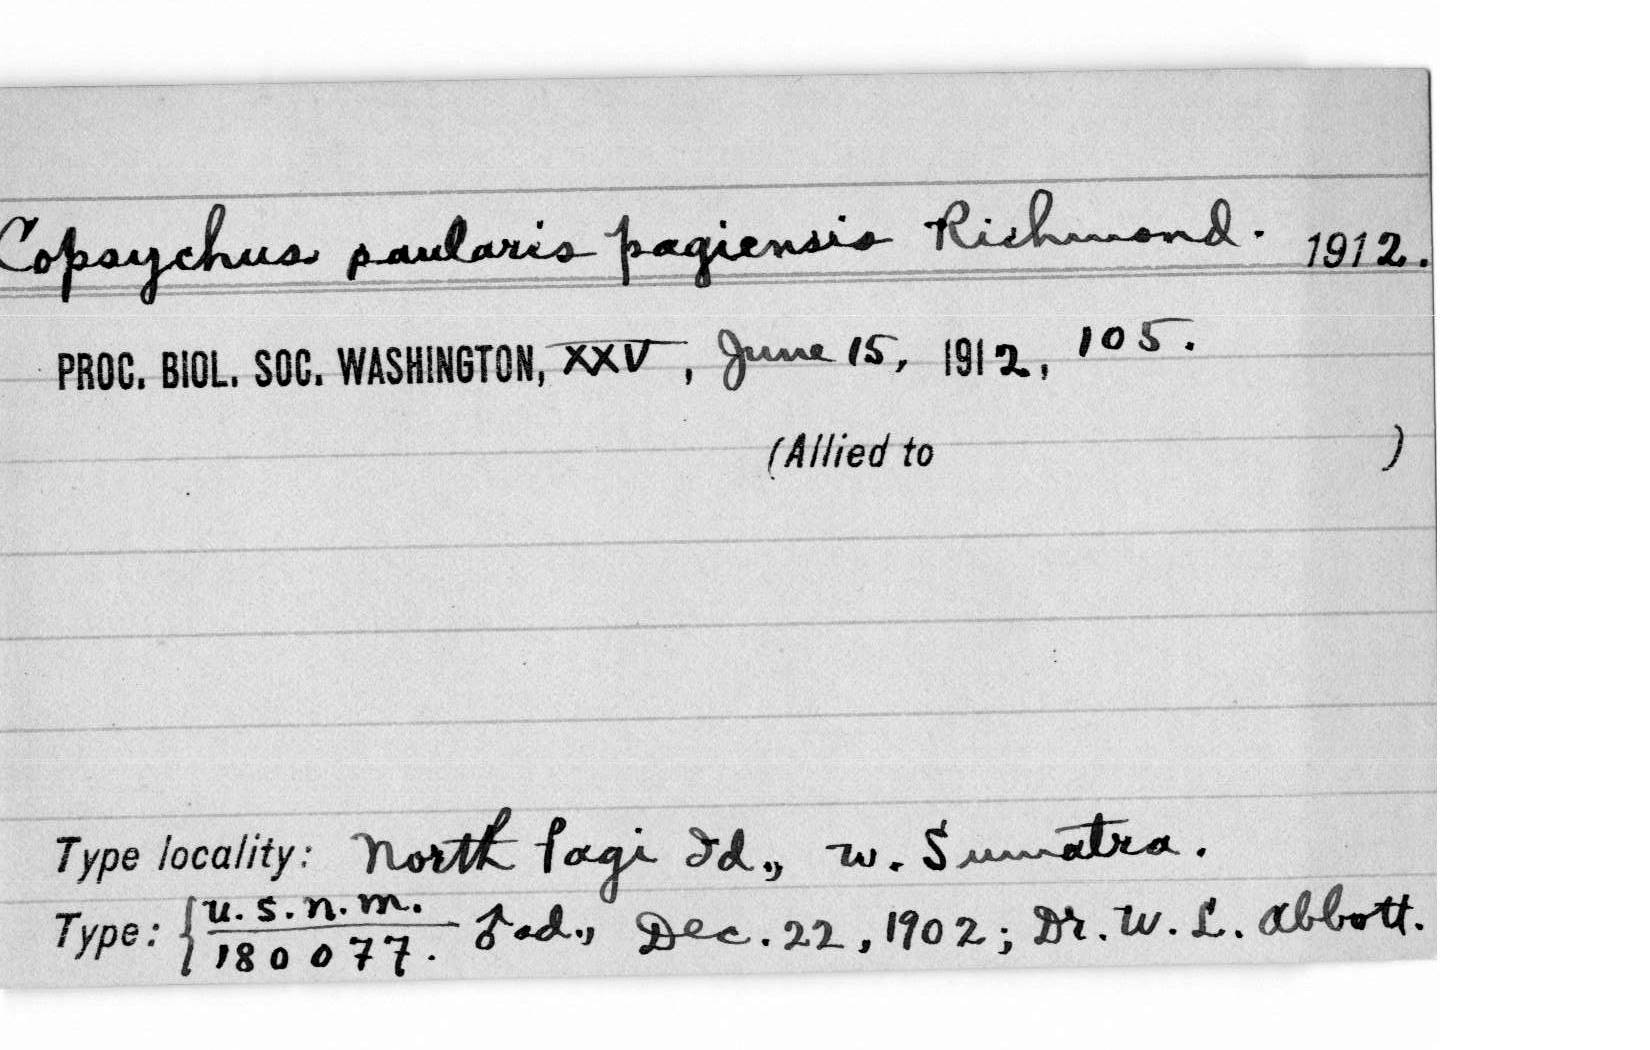 Copsychus saularis pagiensis Richmond. 1912.
PROC. BIOL. SOC. WASHINGTON, XXV, June 15, 1912, 105.
(Allied to )
Type locality: North Pagi Id., w. Sumatra.
Type: { U.S.N.M. ♂ ad., Dec. 22, 1902; Dr. W. L. Abbott.
180077.